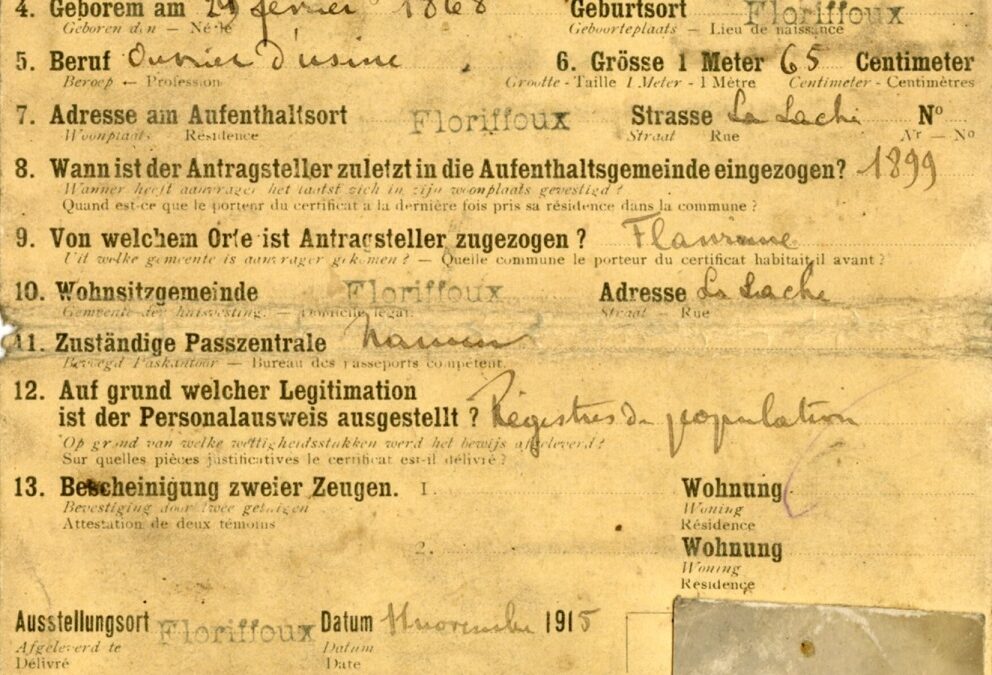 4. Geborem am 29 février 1868 Geburtsort Floriffoux
Geboren den — Né le Geboorteplaats — Lieu de naissance
5. Beruf Ouvrier d'usine 6. Grösse 1 Meter 65 Centimeter
Beroep — Profession Grootte - Taille 1 Meter - 1 Mètre Centimeter - Centimètres
7. Adresse am Aufenthaltsort Floriffoux Strasse La Lache No
Woonplaats Résidence Straat Rue Nr — No
8. Wann ist der Antragsteller zuletzt in die Aufenthaltsgemeinde eingezogen? 1899
Wanner heeft aanvrager het laatst zich in zijn woonplaats gevestigd ?
Quand est-ce que le porteur du certificat a la dernière fois pris sa résidence dans la commune ?
9. Von welchem Orte ist Antragsteller zugezogen ? Flawinne
Uit welke gemeente is aanvrager gekomen ? — Quelle commune le porteur du certificat habitait-il avant ?
10. Wohnsitzgemeinde Floriffoux Adresse La Lache
Gemeente der huisvesting. — Domicile légal. Straat — Rue
11. Zuständige Passzentrale Namur
Bevoegd Paskantoor — Bureau des passeports compétent.
12. Auf grund welcher Legitimation
ist der Personalausweis ausgestellt ? Régistres de population
Op grond van welke wettigheidsstukken werd het bewijs afgeleverd ?
Sur quelles pièces justificatives le certificat est-il délivré ?
13. Bescheinigung zweier Zeugen. 1. Wohnung
Bevestiging door twee getuigen Woning
Attestation de deux témoins Résidence
2. Wohnung
Woning
Résidence
Ausstellungsort Floriffoux Datum 11 novembre 1915
Afgeleverd te Datum
Délivré Date